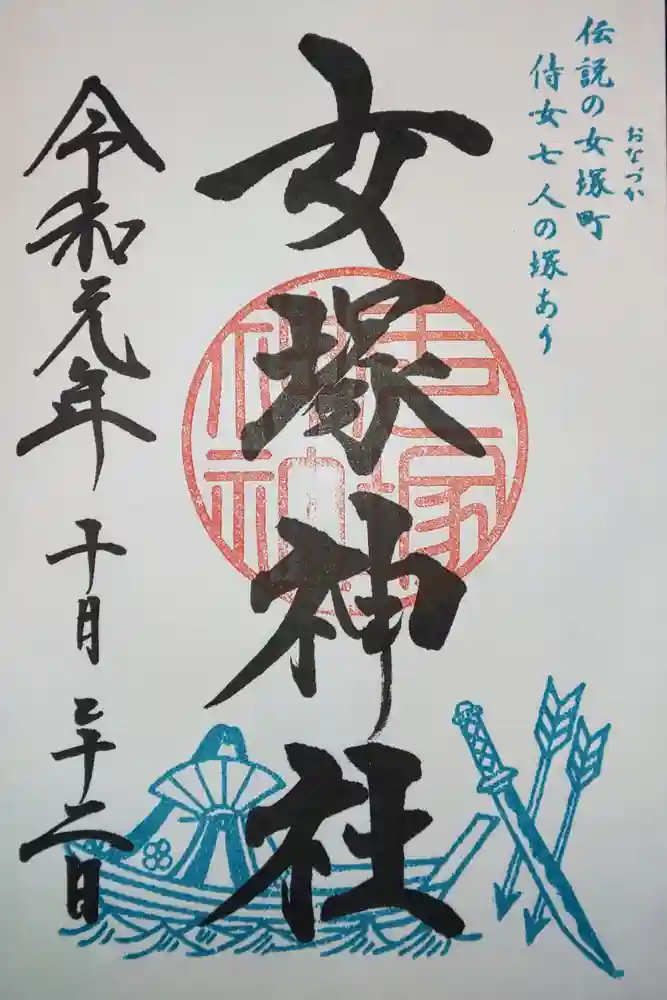 伝説の女塚町
おなづか
侍女七人の塚あり
女塚神社
女塚神社
令和元年十月二十二日